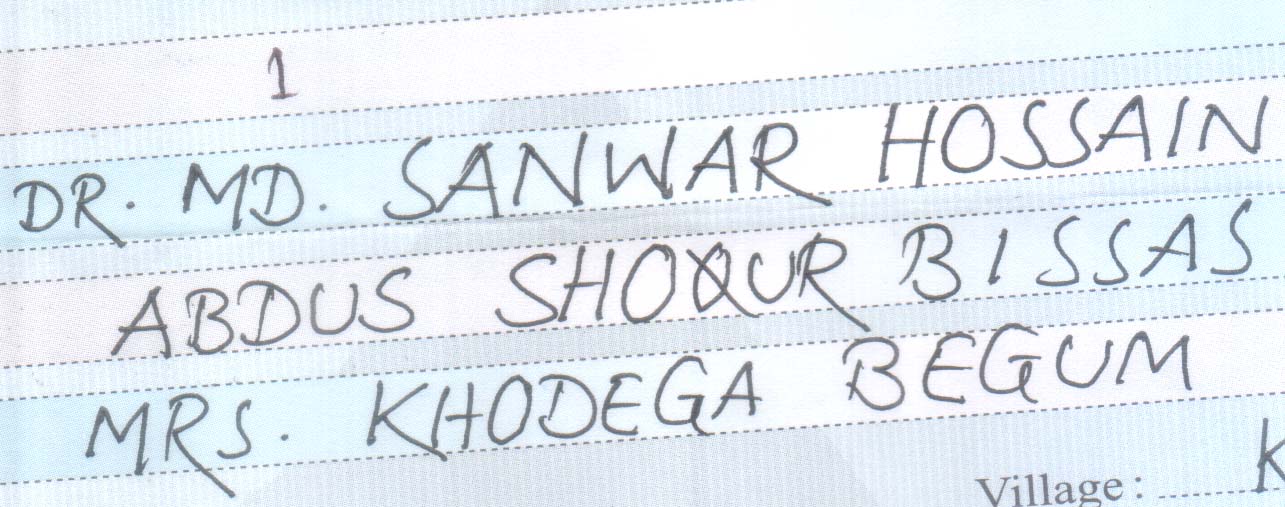 1
DR. MD. SANWAR HOSSAIN
ABDUS SHOQUR BISSAS
MRS. KHODEGA BEGUM
Village : K